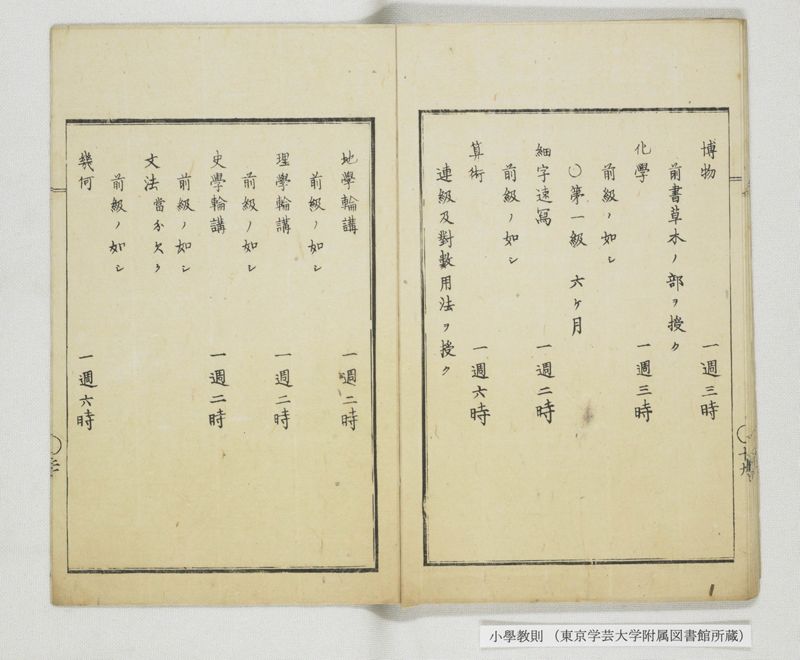 博物 一週三時
前書草木ノ部ヲ授ク
化學 一週三時
前級ノ如シ
〇第一級 六ケ月
細字速寫 一週二時
前級ノ如シ
算術 一週六時
連級及對數用法ヲ授ク
〇十九
地學輪講 一週二時
前級ノ如シ
理學輪講 一週二時
前級ノ如シ
史學輪講 一週二時
前級ノ如シ
文法當分欠ク
前級ノ如シ
幾何 一週六時
小學教則 (東京学芸大学附属図書館所蔵)